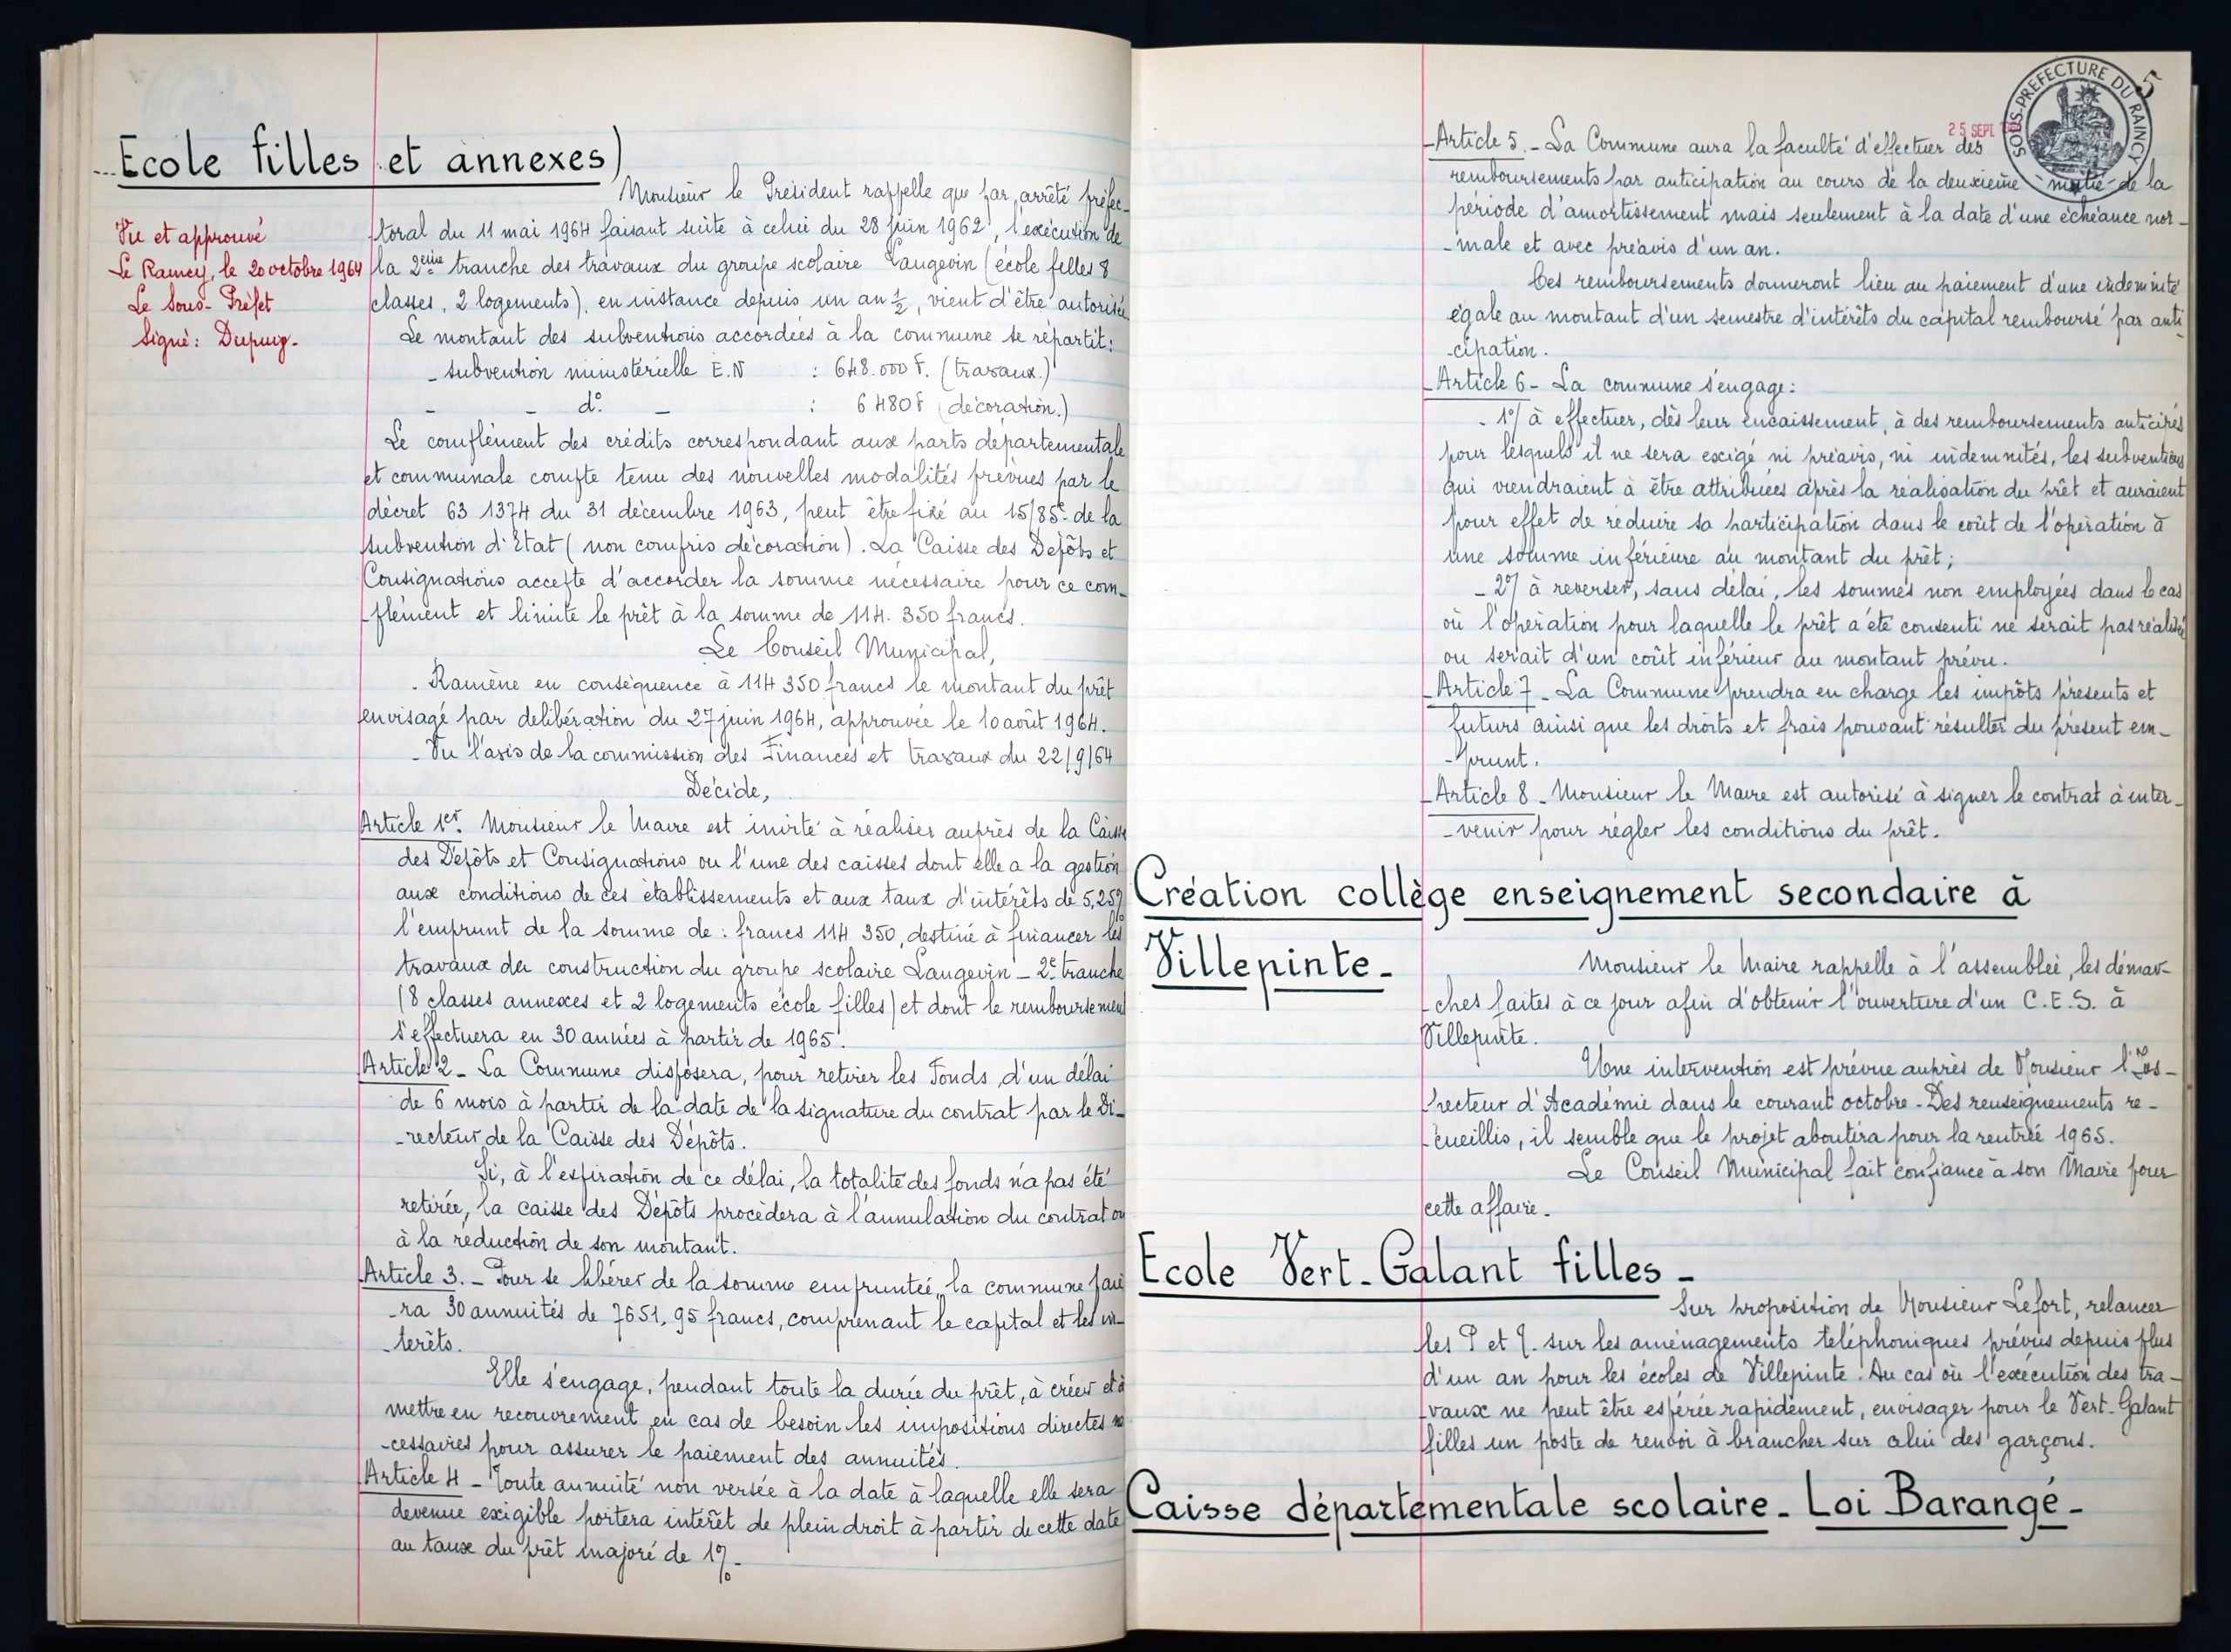 Ecole filles et annexes)
Monsieur le Président rappelle que par arrêté préfec-
Vu et approuvé
Le Raincy, le 20 octobre 1964
Le Sous-Préfet
Signé: Dupuy-
toral du 11 mai 1964 faisant suite à celui du 28 juin 1962, l'exécution de
la 2ème tranche des travaux du groupe scolaire Langevin (école filles 8
classes, 2 logements), en instance depuis un an ½, vient d'être autorisée.
Le montant des subventions accordées à la commune se répartit:
- subvention ministérielle E.N : 648.000 F. (travaux.)
- - d°. - : 6 480 F (décoration.)
Le complément des crédits correspondant aux parts départementale
et communale compte tenu des nouvelles modalités prévues par le
décret 63 1374 du 31 décembre 1963, peut être fixé au 15/85e de la
subvention d'Etat (non compris décoration). La Caisse des Dépôts et
Consignations accepte d'accorder la somme nécessaire pour ce com-
-plément et limite le prêt à la somme de 114.350 francs.
Le Conseil Municipal,
. Ramène en conséquence à 114 350 francs le montant du prêt
envisagé par delibération du 27 juin 1964, approuvée le 10 août 1964.
- Vu l'avis de la commission des Finances et travaux du 22/9/64
Décide,
Article 1er. Monsieur le Maire est invité à réaliser auprès de la Caisse
des Dépôts et Consignations ou l'une des caisses dont elle a la gestion
aux conditions de ces établissements et aux taux d'intérêts de 5,25%
l'emprunt de la somme de : francs 114 350, destiné à financer les
travaux de construction du groupe scolaire Langevin - 2e tranche
(8 classes annexes et 2 logements école filles) et dont le remboursement
s'effectuera en 30 années à partir de 1965.
Article 2 - La Commune disposera, pour retirer les Fonds, d'un délai
de 6 mois à partir de la date de la signature du contrat par le Di-
-recteur de la Caisse des Dépôts.
Si, à l'expiration de ce délai, la totalité des fonds n'a pas été
retirée, la caisse des Dépôts procèdera à l'annulation du contrat ou
à la réduction de son montant.
Article 3. - Pour se libérer de la somme empruntée, la commune paie
-ra 30 annuités de 7651,95 francs, comprenant le capital et les in-
-terêts.
Elle s'engage, pendant toute la durée du prêt, à créer et à
mettre en recouvrement en cas de besoin les impositions directes né
-cessaires pour assurer le paiement des annuités.
Article 4 - Toute annuité non versée à la date à laquelle elle sera
devenue exigible portera intérêt de plein droit à partir de cette date
au taux du prêt majoré de 1%.
5
SOUS-PREFECTURE DU RAINCY
25 SEPT
Article 5. - La Commune aura la faculté d'effectuer des
remboursements par anticipation au cours de la deuxième - moitié - de la
période d'amortissement mais seulement à la date d'une échéance nor-
-male et avec préavis d'un an.
Ces remboursements donneront lieu au paiement d'une indemnité
égale au montant d'un semestre d'intérêts du capital remboursé par anti
-cipation.
Article 6 - La commune s'engage:
- 1°/ à effectuer, dès leur encaissement, à des remboursements anticipés
pour lesquels il ne sera exigé ni préavis, ni indemnités, les subventions
qui viendraient à être attribuées après la réalisation du prêt et auraient
pour effet de réduire sa participation dans le coût de l'opération à
une somme inférieure au montant du prêt;
- 2°/ à reverser, sans délai, les sommes non employées dans le cas
où l'opération pour laquelle le prêt a été consenti ne serait pas réalisée
ou serait d'un coût inférieur au montant prévu.
Article 7 - La Commune prendra en charge les impôts présents et
futurs ainsi que les droits et frais pouvant résulter du présent em-
-prunt.
Article 8 - Monsieur le Maire est autorisé à signer le contrat à inter-
-venir pour régler les conditions du prêt.
Création collège enseignement secondaire à
Villepinte-
Monsieur le Maire rappelle à l'assemblée, les démar-
-ches faites à ce jour afin d'obtenir l'ouverture d'un C.E.S. à
Villepinte.
Une intervention est prévue auprès de Monsieur l'Ins-
-pecteur d'Académie dans le courant octobre. Des renseignements re-
-cueillis, il semble que le projet aboutira pour la rentrée 1965.
Le Conseil Municipal fait confiance à son Maire pour
cette affaire.
Ecole Vert-Galant filles-
Sur proposition de Monsieur Lefort, relancer
les P et T. sur les aménagements téléphoniques prévus depuis plus
d'un an pour les écoles de Villepinte. Au cas où l'exécution des tra-
-vaux ne peut être espérée rapidement, envisager pour le Vert-Galant
filles un poste de renvoi à brancher sur celui des garçons.
Caisse départementale scolaire-Loi Barangé-